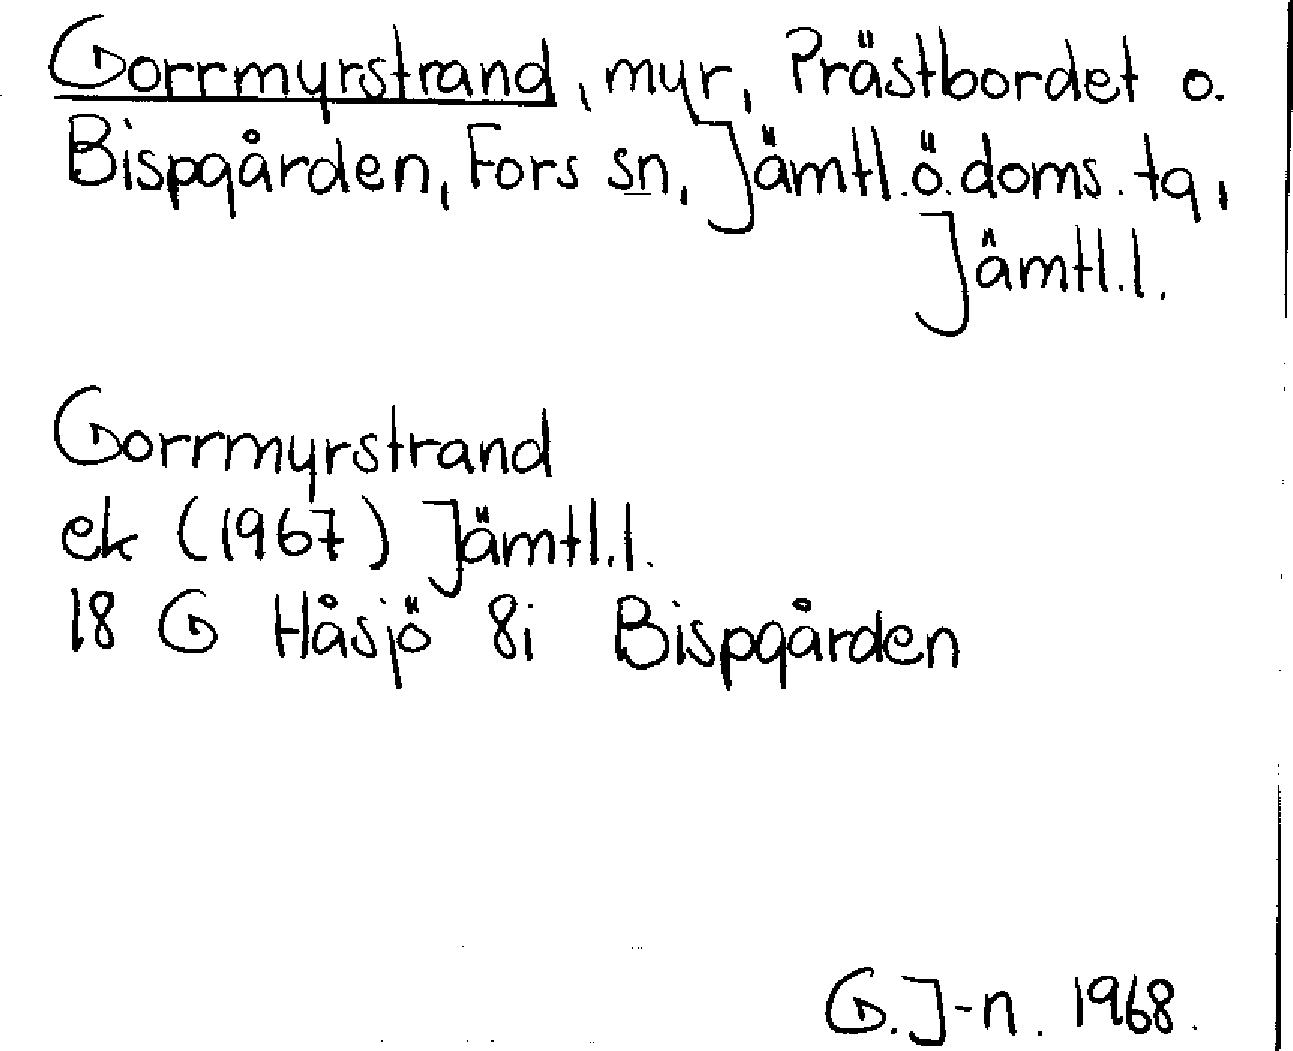 Gorrmyrstrand, myr, Prästbordet o.
Bispgården, Fors sn, Jämtl.ö.doms.tg,
Jämtl.l.
Gorrmyrstrand
ek (1967) Jämtl.l.
18 G Håsjö 8i Bispgården
G.J-n. 1968.